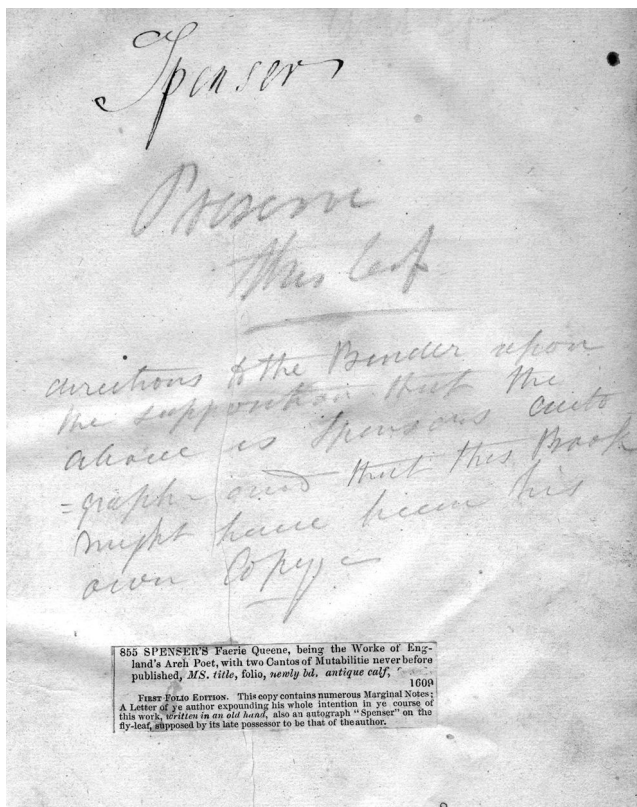 Spenser
Preserve
this leaf
directions to the Binder upon
the supposition that the
above is Spensers auto
=graph - and that this Book
might have been his
own Copy -
855 SPENSER'S Faerie Queene, being the Worke of Eng-
land's Arch Poet, with two Cantos of Mutabilitie never before
published, MS. title, folio, newly bd. antique calf,
1609
FIRST FOLIO EDITION. This copy contains numerous Marginal Notes;
A Letter of ye author expounding his whole intention in ye course of
this work, written in an old hand, also an autograph "Spenser" on the
fly-leaf, supposed by its late possessor to be that of the author.